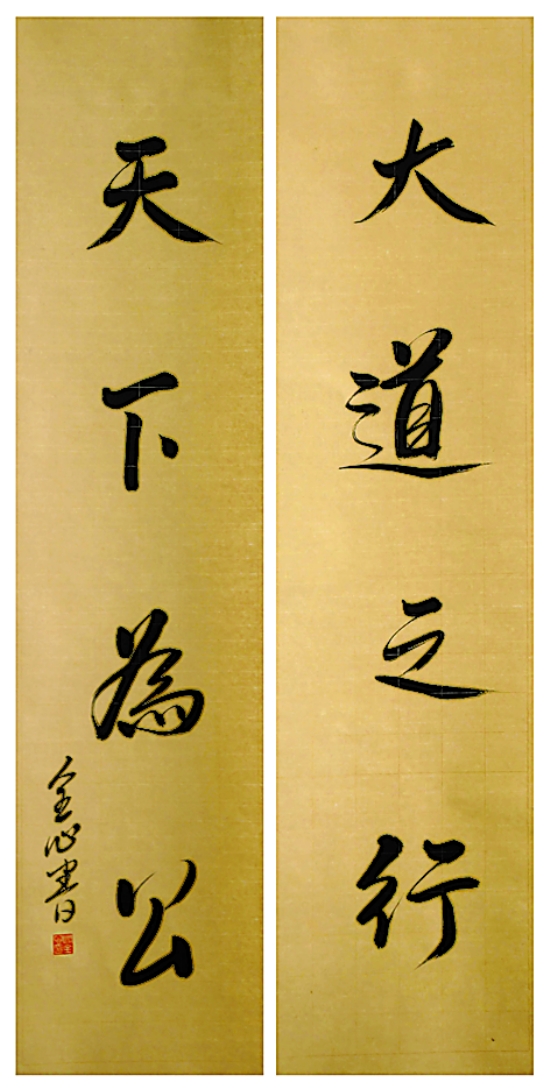 大道之行
天下為公
金心書